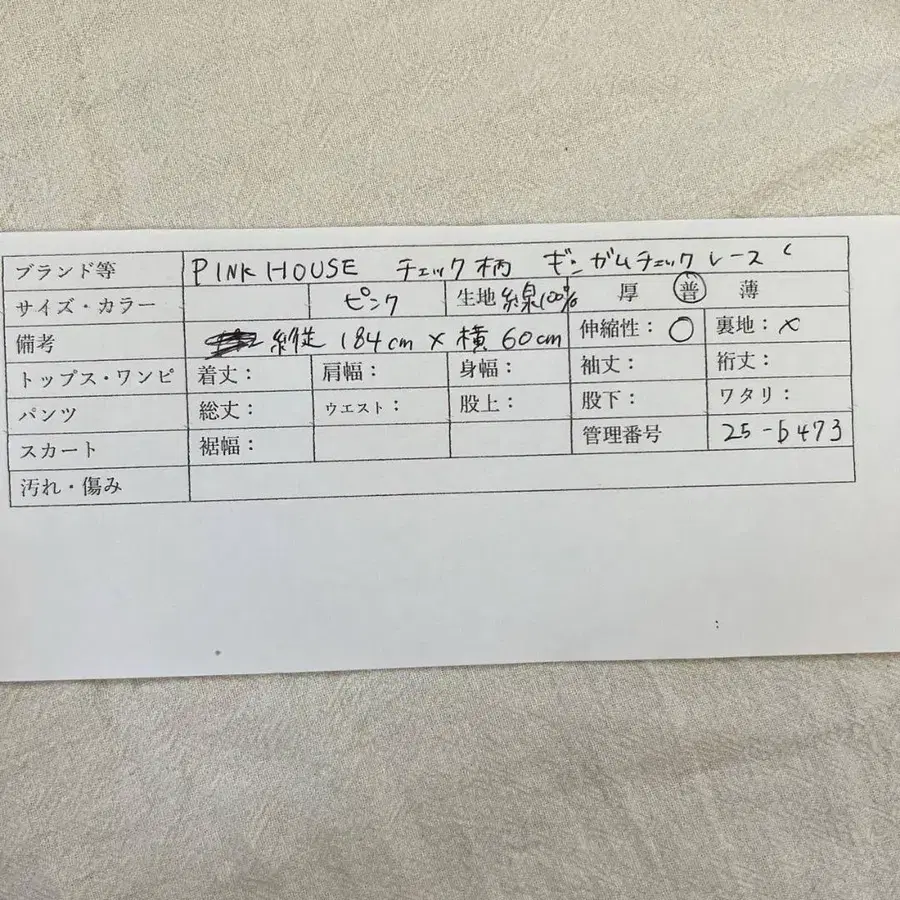 ブランド等 PINK HOUSE チェック柄 ギンガムチェック レース
サイズ・カラー ピンク 生地 綿100% 厚 普 薄
備考 縦 184cm × 横 60cm 伸縮性： ○ 裏地： ×
トップス・ワンピ 着丈： 肩幅： 身幅： 袖丈： 裄丈：
パンツ 総丈： ウエスト： 股上： 股下： ワタリ：
スカート 裾幅： 管理番号 25-b473
汚れ・傷み